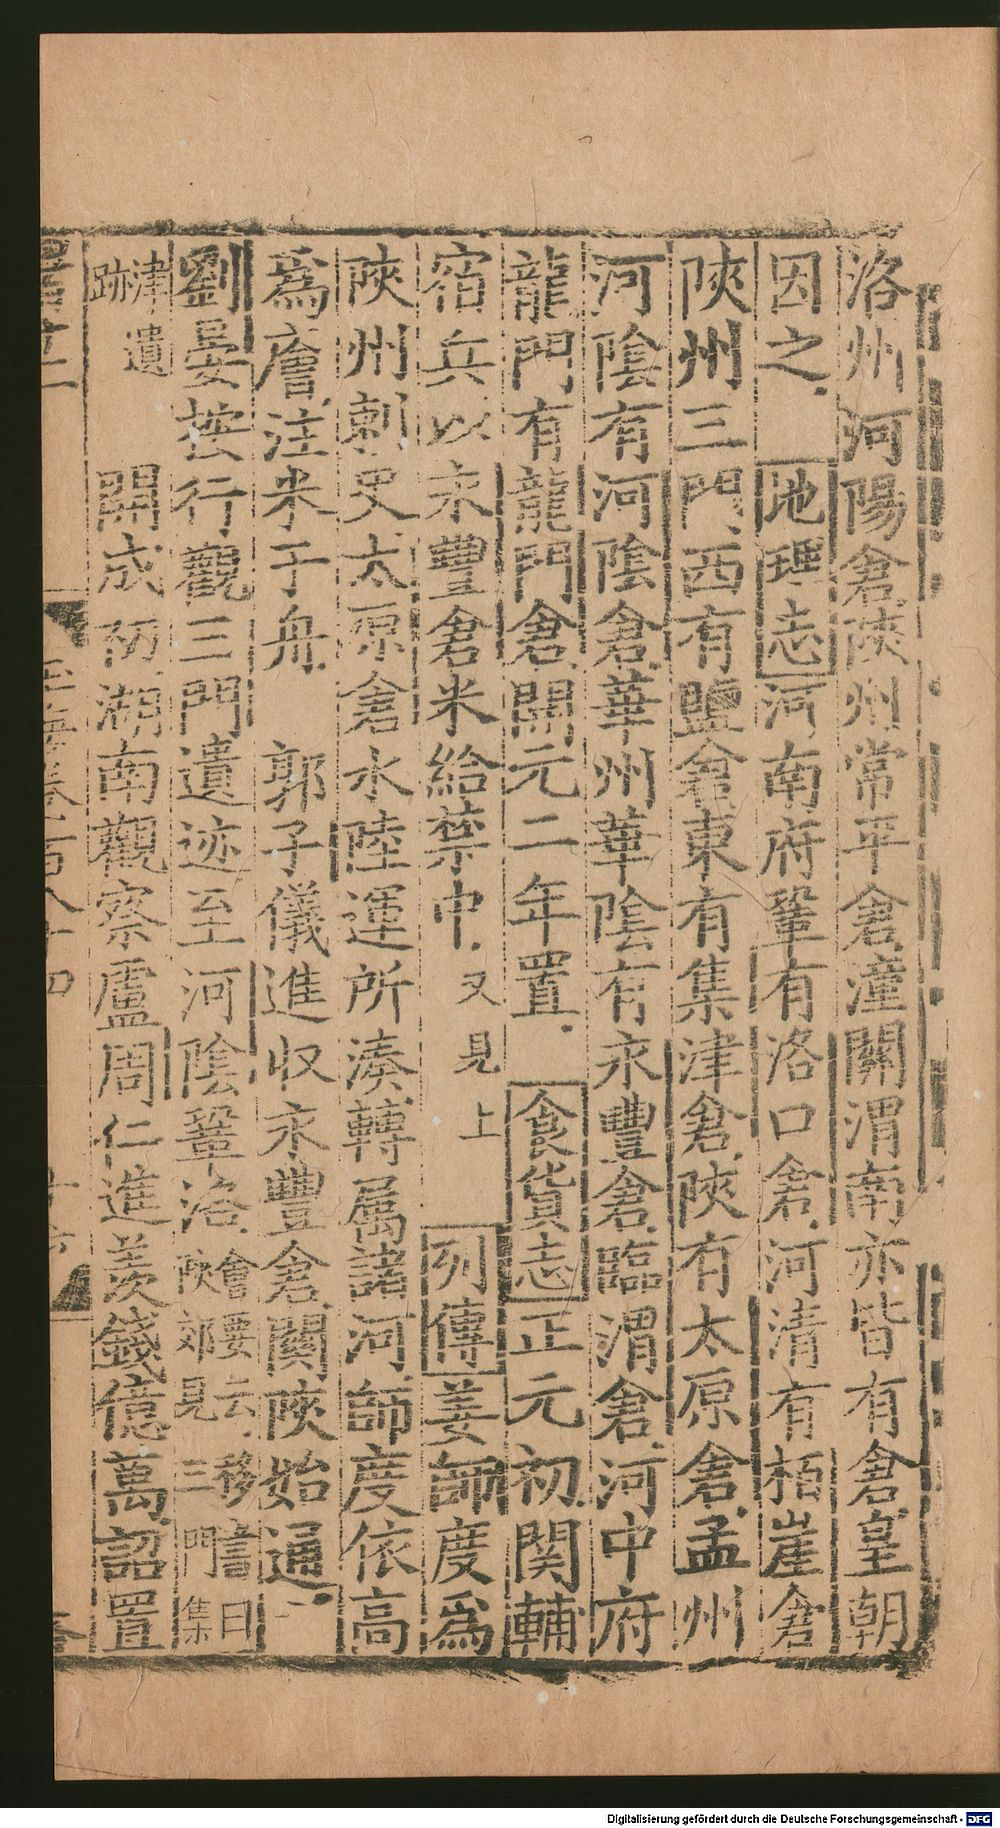 洛州河陽倉陝州常平倉潼關渭南亦皆有倉皇朝
因之 地理志河南府鞏有洛口倉河清有栢崖倉
陝州三門西有鹽倉東有集津倉陝有太原倉孟州
河陰有河陰倉華州華陰有永豐倉臨渭倉河中府
龍門有龍門倉開元二年置 食貨志正元初関輔
宿兵以永豐倉米給禁中又見上 列傳姜師度爲
陝州刺史太原倉水陸運所湊轉屬諸河師度依高
爲廥注米于舟 郭子儀進収永豐倉關陝始通
劉晏按行觀三門遺迹至河陰鞏洛會要云移書曰
陝郊見三門集
津遺
跡 開成初湖南觀察盧周仁進羨錢億萬詔置
玉海卷一百八十四
Digitalisierung gefördert durch die Deutsche Forschungsgemeinschaft - DFG